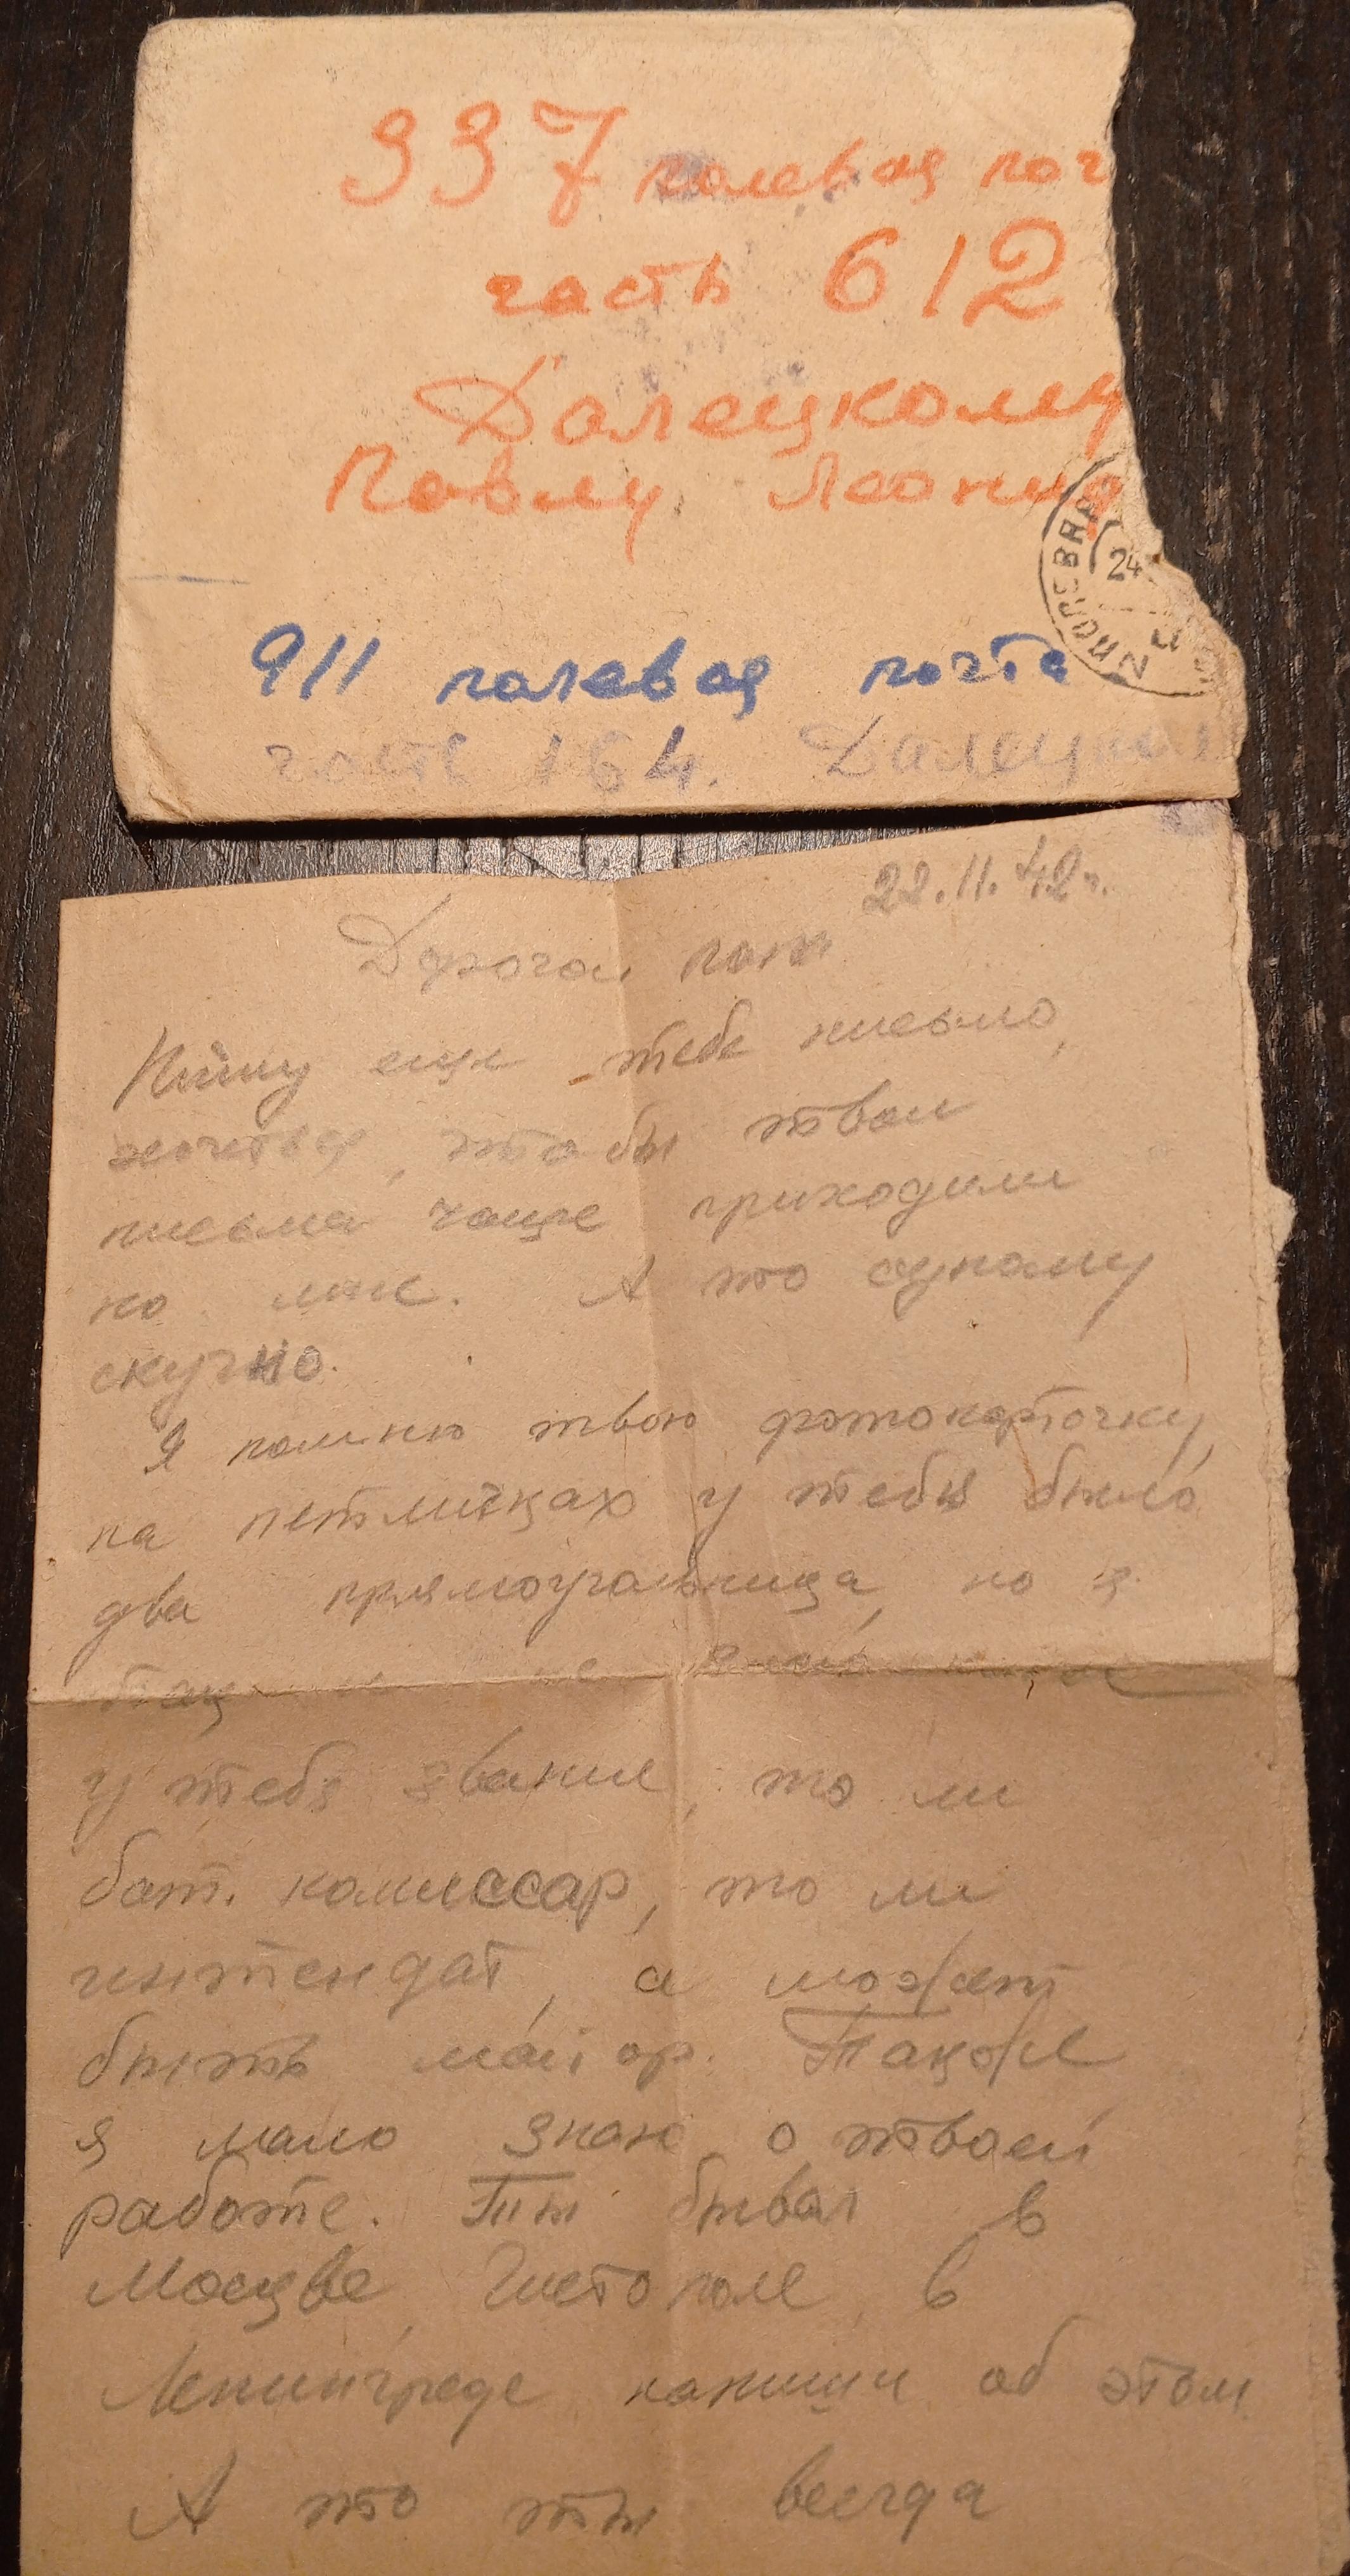 337 полевая поч
часть 612
Далецкому
Павлу Леонид
ПОЛЕВАЯ
24
911 полевая почта
часть 164. Далецк
22.11.42 г.
Дорогой папа
Пишу еще тебе письмо,
хочется, чтобы твои
письма чаще приходили
ко мне. А то одному
скучно.
Я помню твою фотокарточку,
на петлицах у тебя было
два прямоугольника, но я
не знаю какое
у тебя звание, то ли
бат. комиссар, то ли
интендат, а может
быть майор. Также
я мало знаю о твоей
работе. Ты бывал в
Москве, Чистополе, в
Ленинграде напиши об этом
А то ты всегда